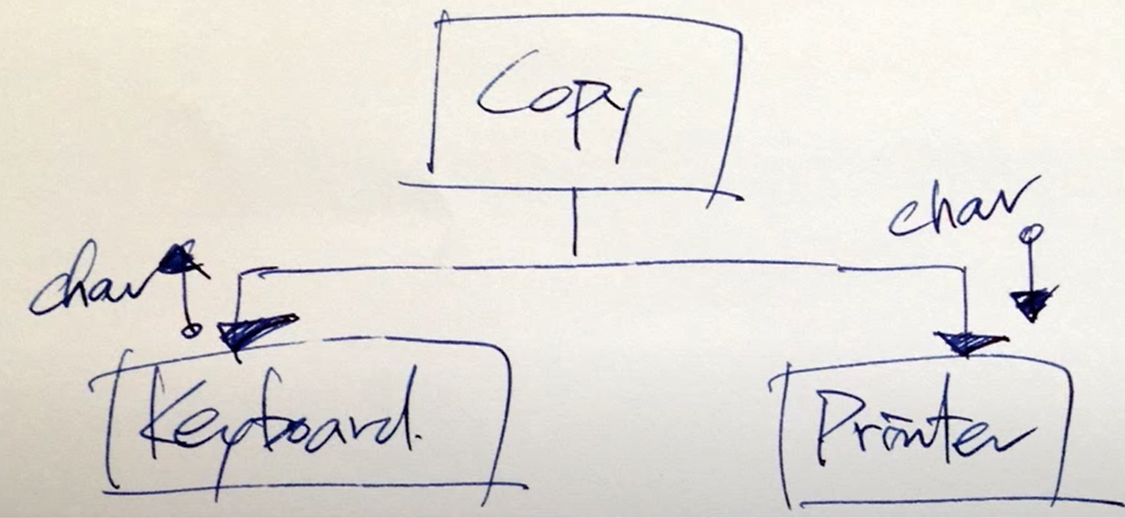 Copy
char
char
Keyboard.
Printer